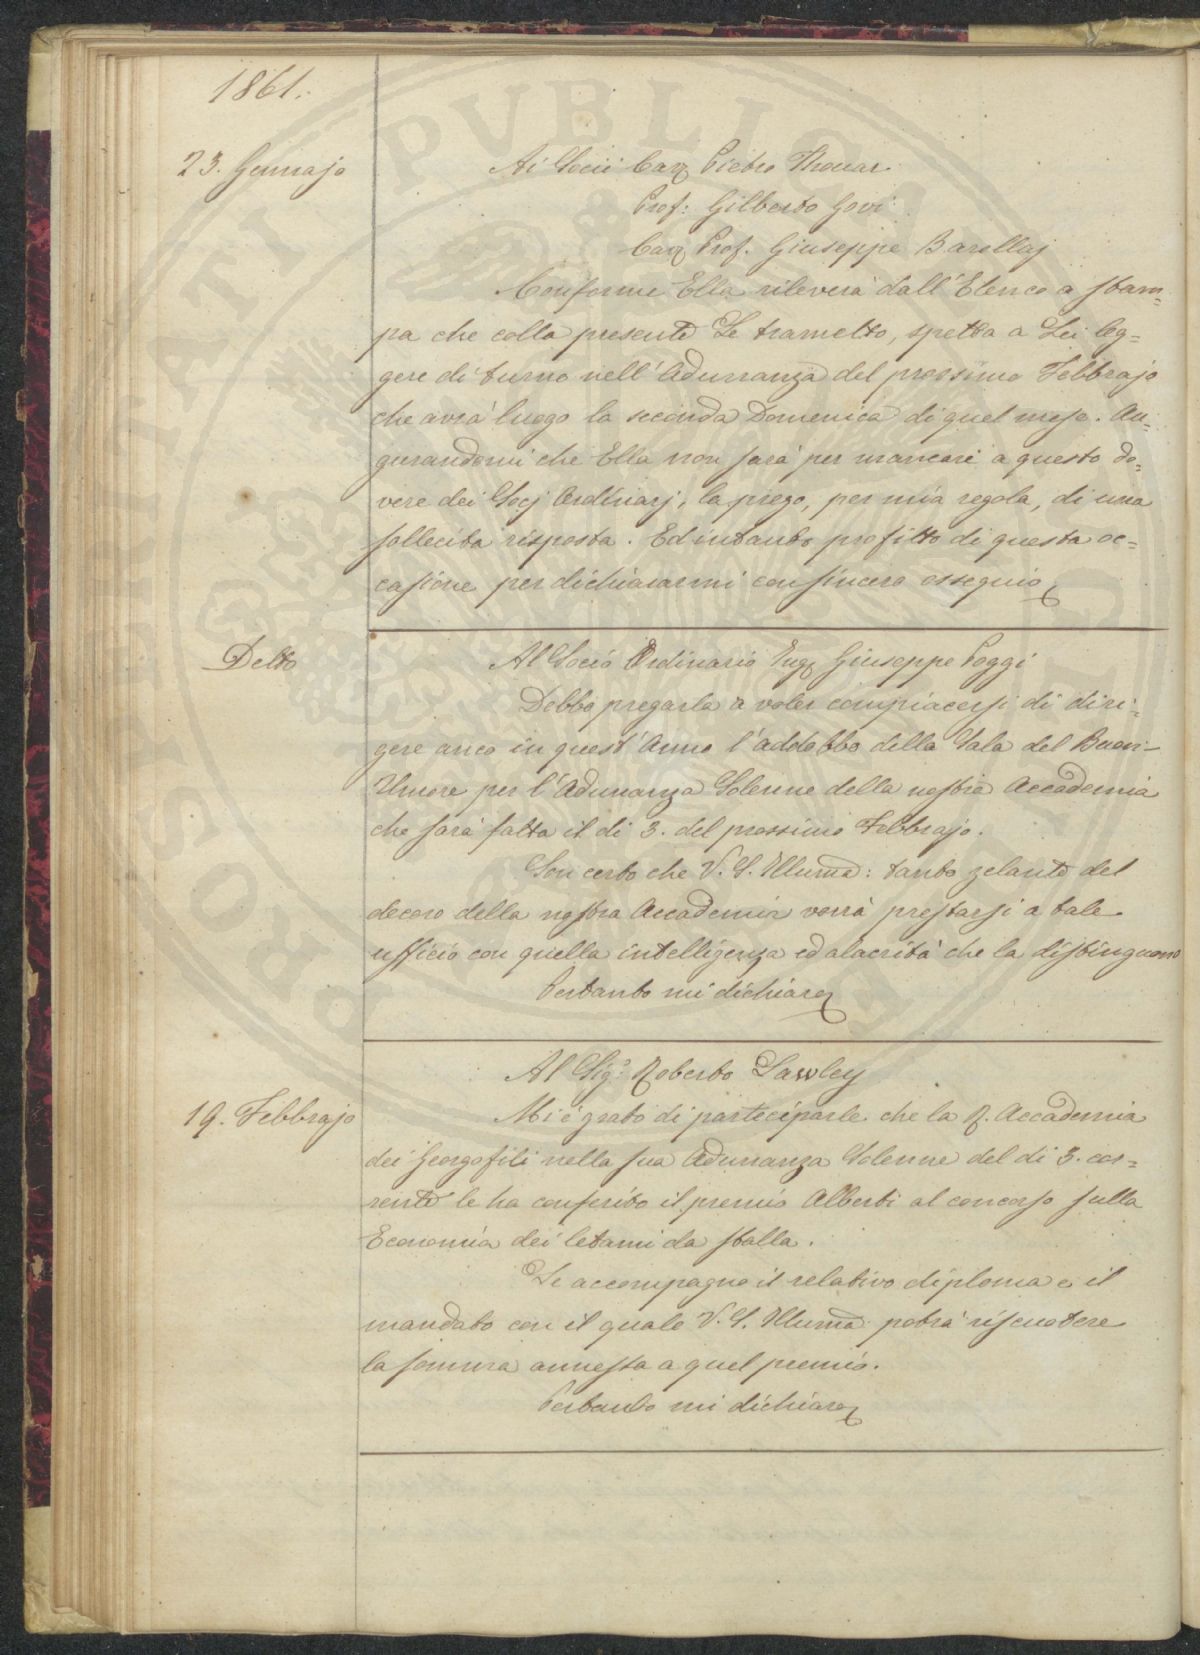 1861.
23. Gennajo
Ai Socii Cav. Pietro Thouar
Prof: Gilberto Govi
Cav. Prof. Giuseppe Barellaj
Conforme Ella rileverà dall'Elenco a stam=
pa che colla presente Le trametto, spetta a Lei leg=
gere di turno nell'Adunanza del prossimo Febbrajo
che avrà luogo la seconda Domenica di quel mese. Au=
gurandomi che Ella non sarà per mancare a questo do=
vere dei Socj Ordinarj, la prego, per mia regola, di una
sollecita risposta. Ed intanto profitto di questa oc=
casione per dichiararmi con sincero ossequio
Detto
Al Socio Ordinario Ing. Giuseppe Poggi
Debbo pregarla a voler compiacersi di diri=
gere anco in quest'Anno l'addobbo della Sala del Buon-
Umore per l'Adunanza Solenne della nostra Accademia
che sarà fatta il dì 3. del prossimo Febbrajo.
Son certo che V. S. Illuma: tanto zelante del
decoro della nostra Accademia vorrà prestarsi a tale
ufficio con quella intelligenza ed alacrità che la distinguono
Pertanto mi dichiaro
Al Sig.r Roberto Lawley
19. Febbrajo
Mi è grato di parteciparle che la R. Accademia
dei Georgofili nella sua Adunanza Solenne del dì 3. cor=
rente le ha conferito il premio Alberti al concorso sulla
Economia dei letami da stalla.
Le accompagno il relativo diploma e il
mandato con il quale V. S. Illuma potrà riscuotere
la somma annessa a quel premio.
Pertanto mi dichiaro